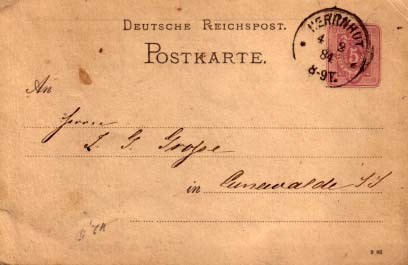 DEUTSCHE REICHSPOST.
POSTKARTE.
HERRNHUT
84
8-9V.
5
An
Herrn
G. Grosse
in Cunewalde